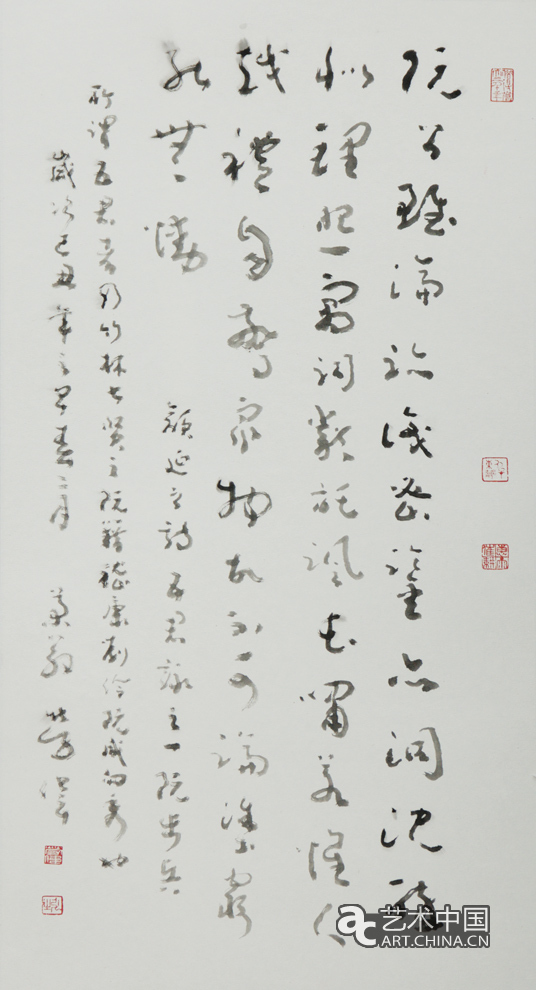 阮公雖淪跡識密鑒亦洞沈醉
似埋照寓詞類託諷長嘯若懷人
越禮自驚眾物故不可論途窮
能無慟
顏延之詩五君詠之一阮步兵
所謂五君者乃竹林七賢之阮籍嵇康劉伶阮咸向秀也
歲次己丑年之早春二月
ac 艺术中国
ART.CHINA.CN